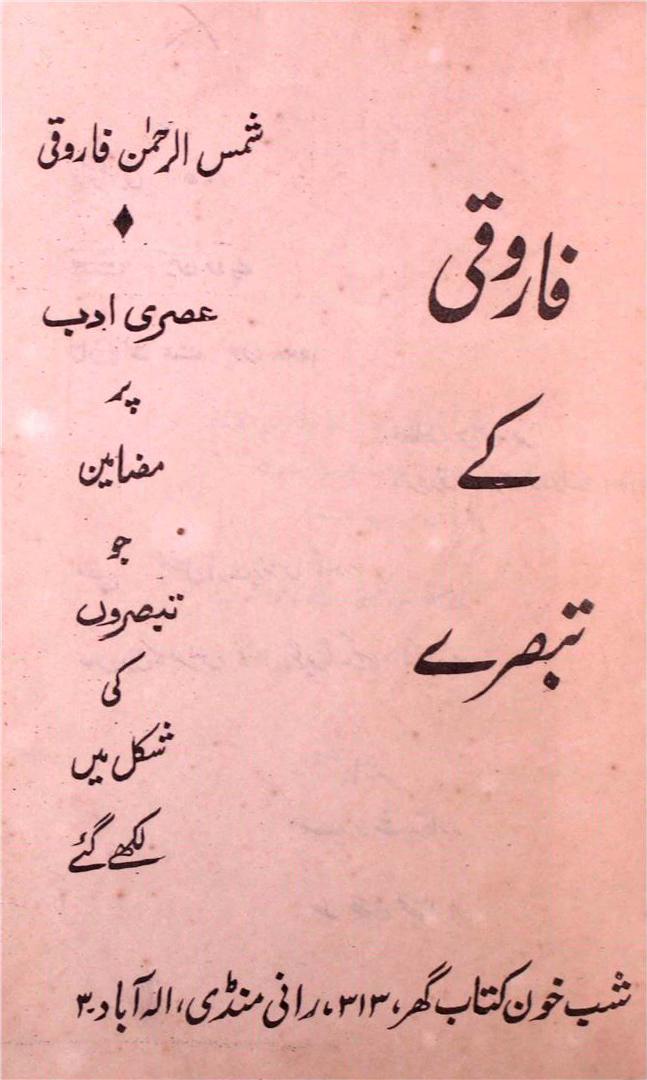 فاروقی
کے
تبصرے
شمس الرحمٰن فاروقی
عصری ادب
پر
مضامین
جو
تبصروں
کی
شکل میں
لکھے گئے
شب خون کتاب گھر، ۳۱۳، رانی منڈی، الہ آباد۔۳